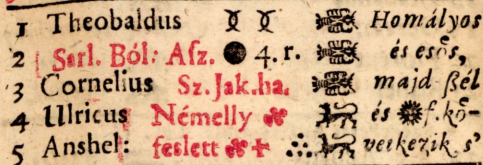 1 Theobaldus Homályos
2 Sarl. Ból: Aſz. 4. r. és esős,
3 Cornelius Sz. Jak. ha. majd ßél
4 Ulricus Némelly és f. kö-
5 Anshel: feslett vetkezik s'